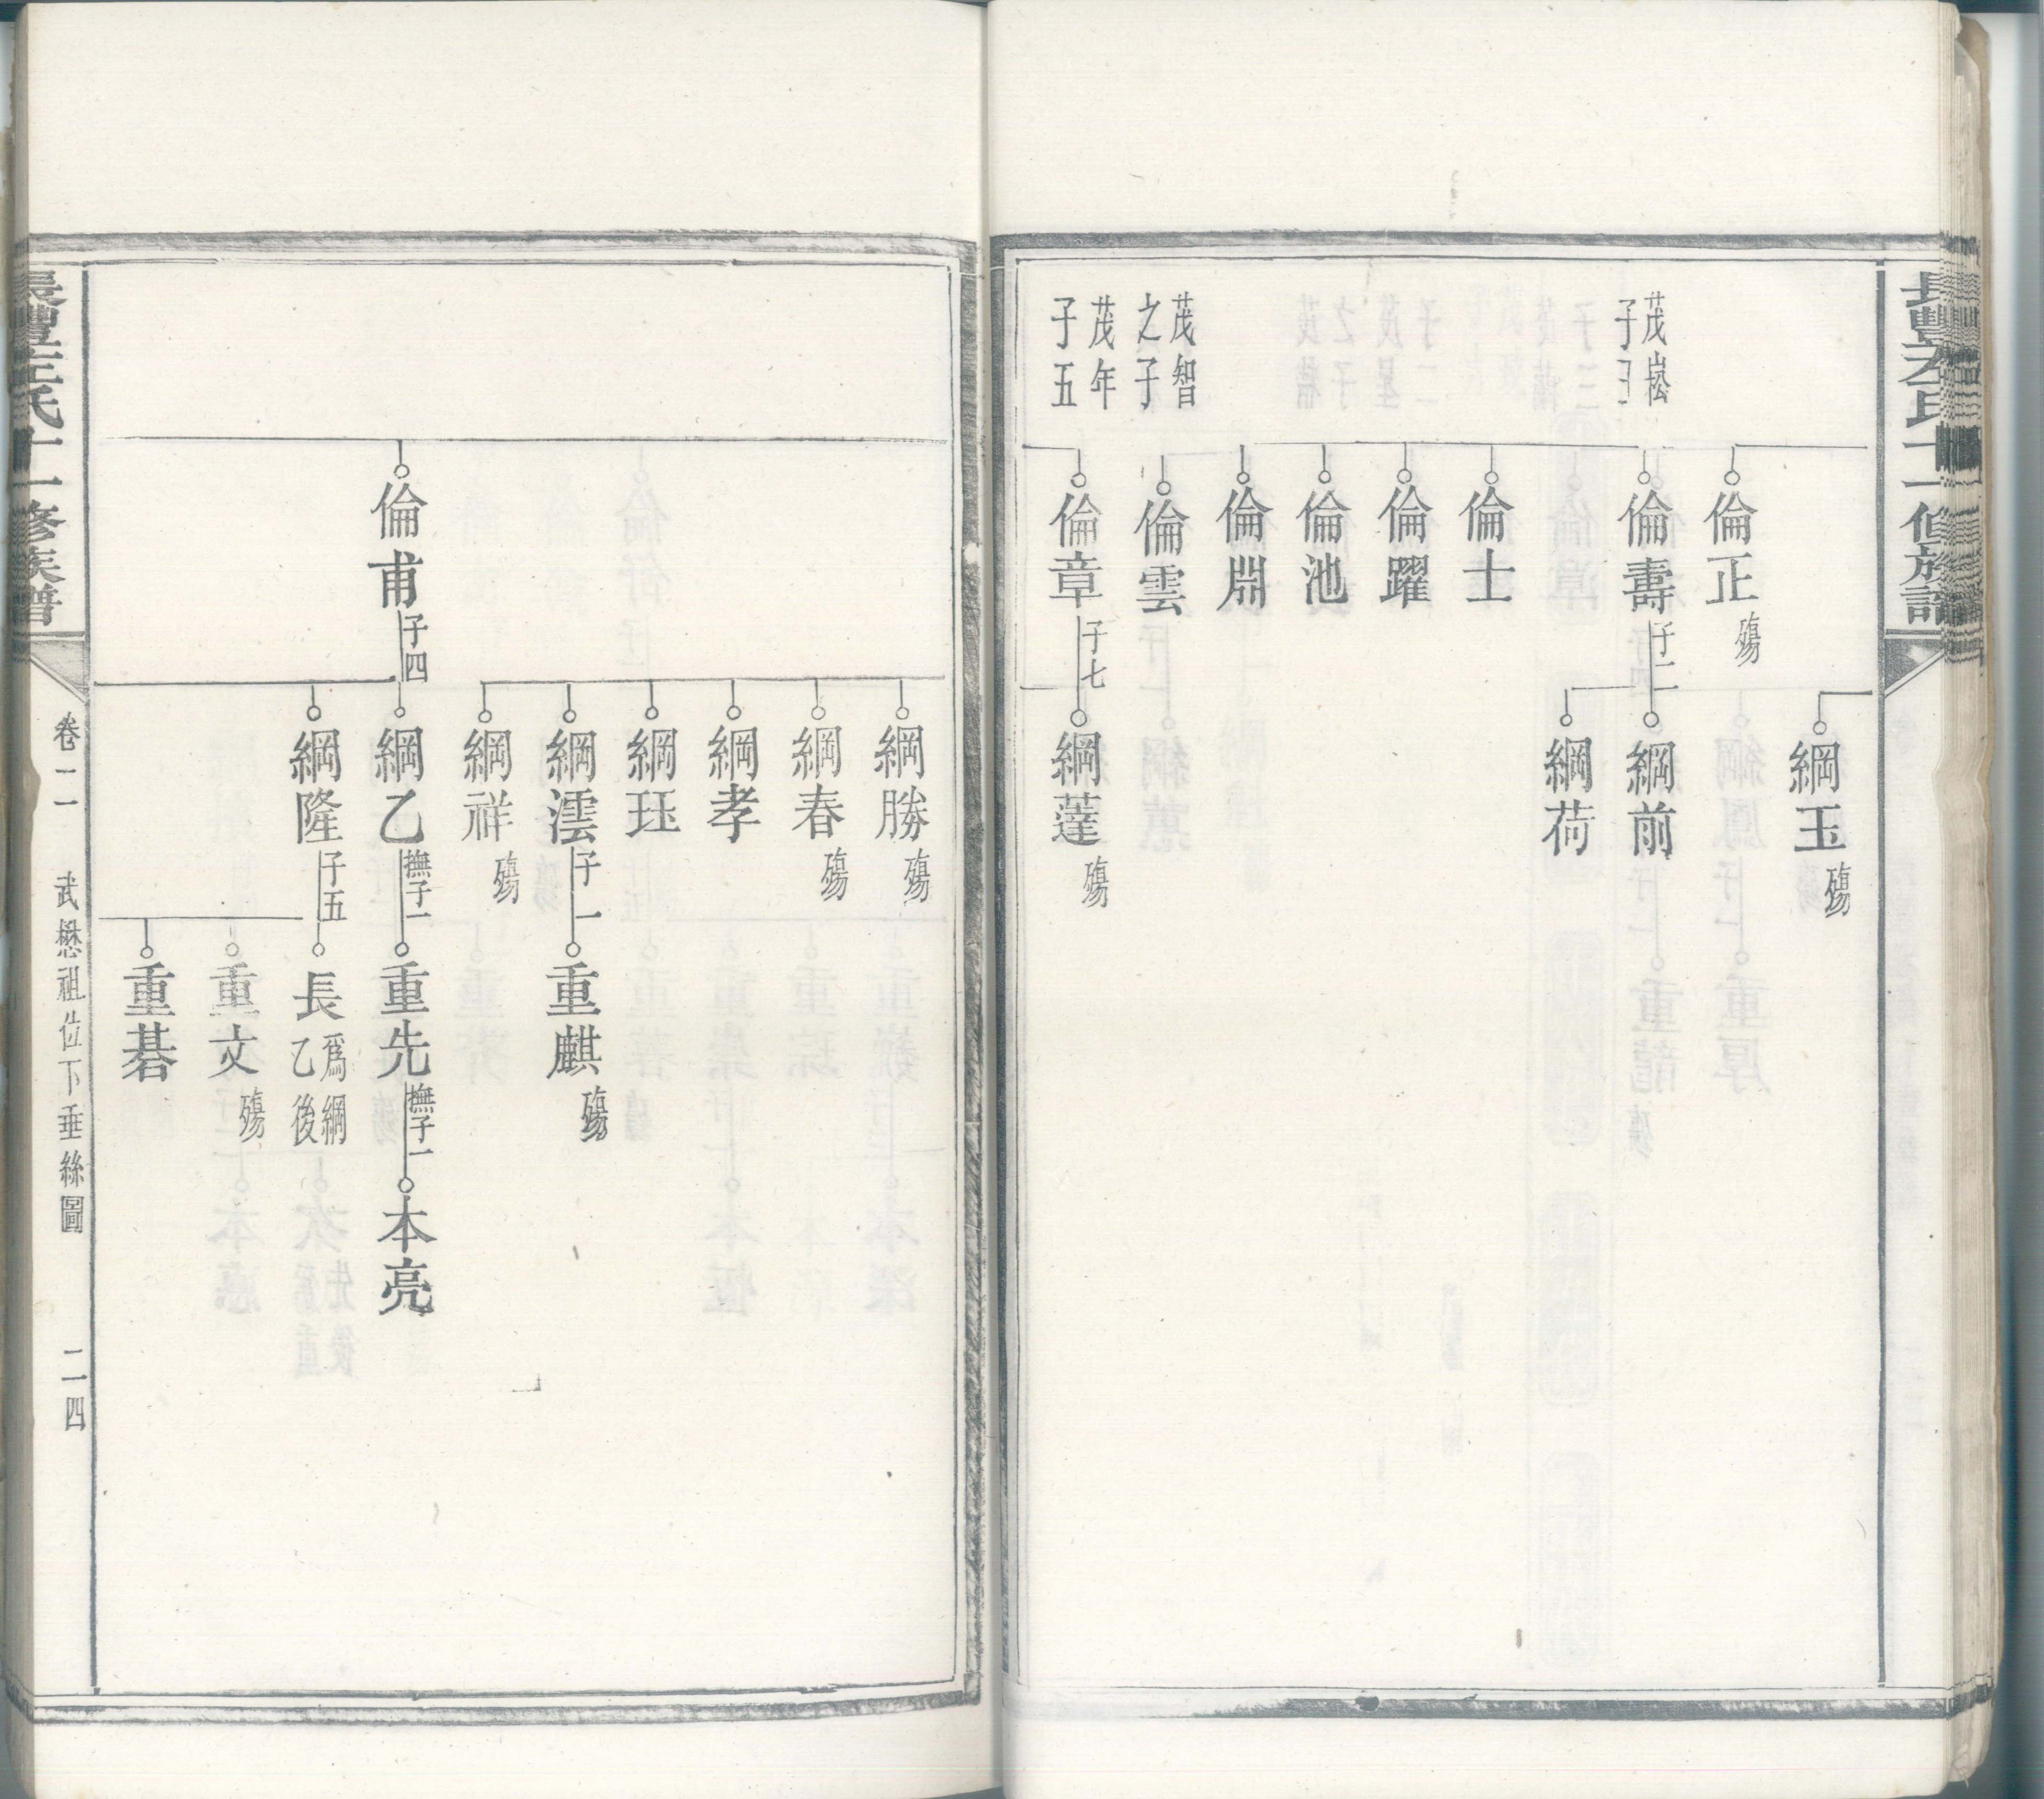 長豐左氏十一修族譜
茂崧
子五
倫正 殤
倫壽 子二
倫士
倫躍
倫池
倫淵
茂智
之子
倫雲
茂年
子五
倫章 子七
綱玉 殤
綱前
綱荷
綱蓮 殤
倫甫 子四
綱勝 殤
綱春 殤
綱孝
綱珏
綱澐 子一
綱祥 殤
綱乙 撫子一
綱隆 子五
重麒 殤
重先 撫子一
長 爲綱
乙後
重文 殤
重碁
本亮
長豐左氏十一修族譜
卷二一 武懋祖位下垂絲圖 二一四